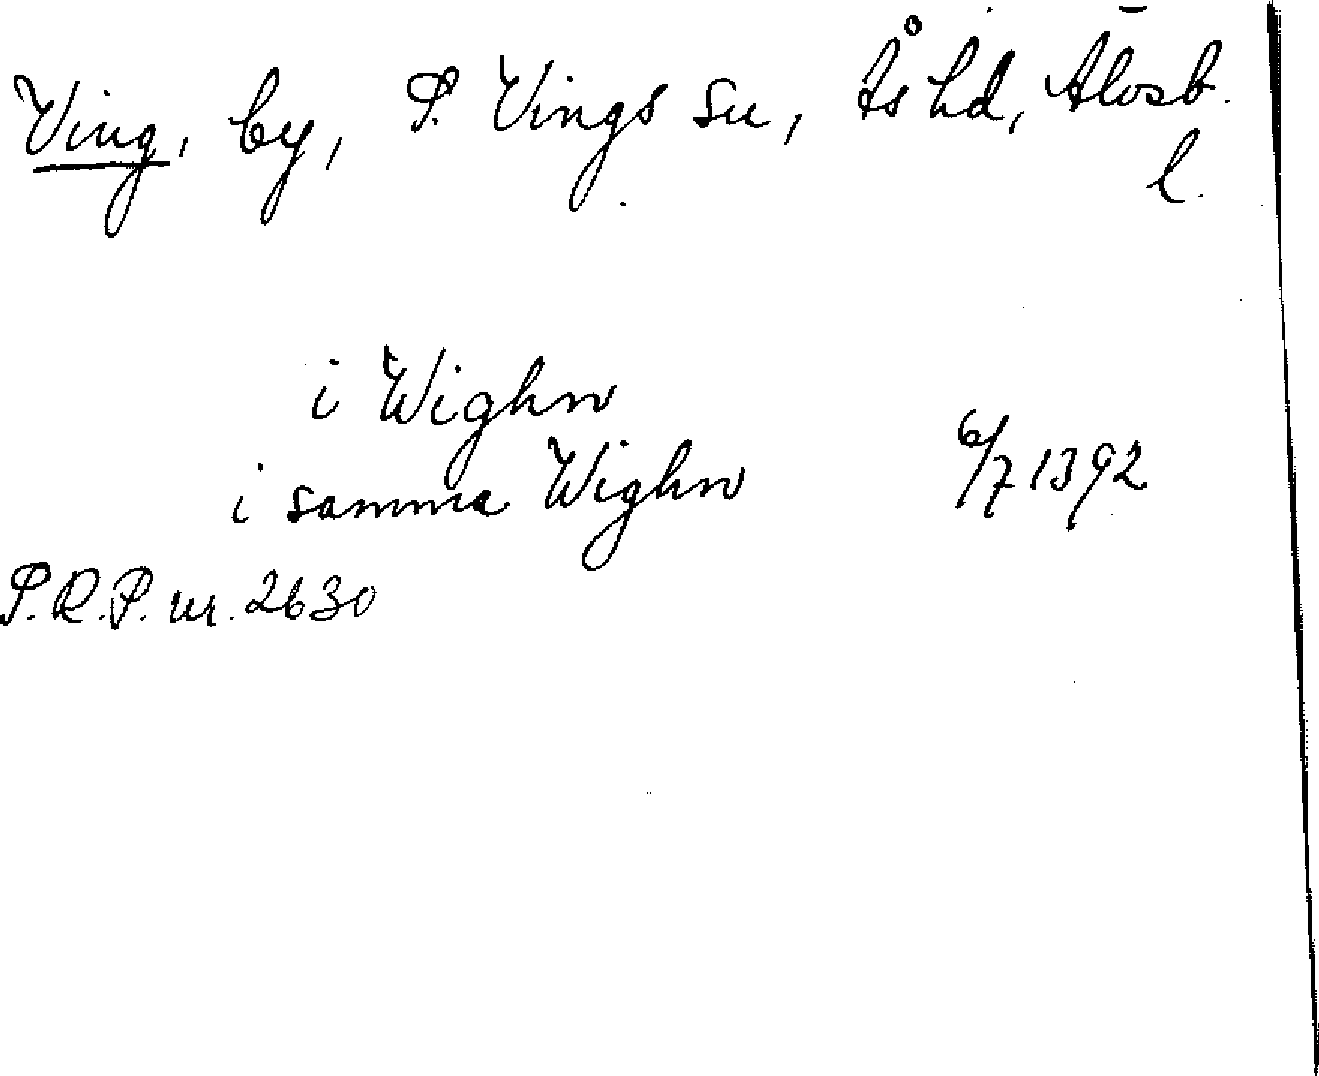 Ving, by, S. Vings sn, Ås hd, Älvsb. l.
i Wighn
i samma Wighn 6/7 1392
S.R.P. nr. 2630